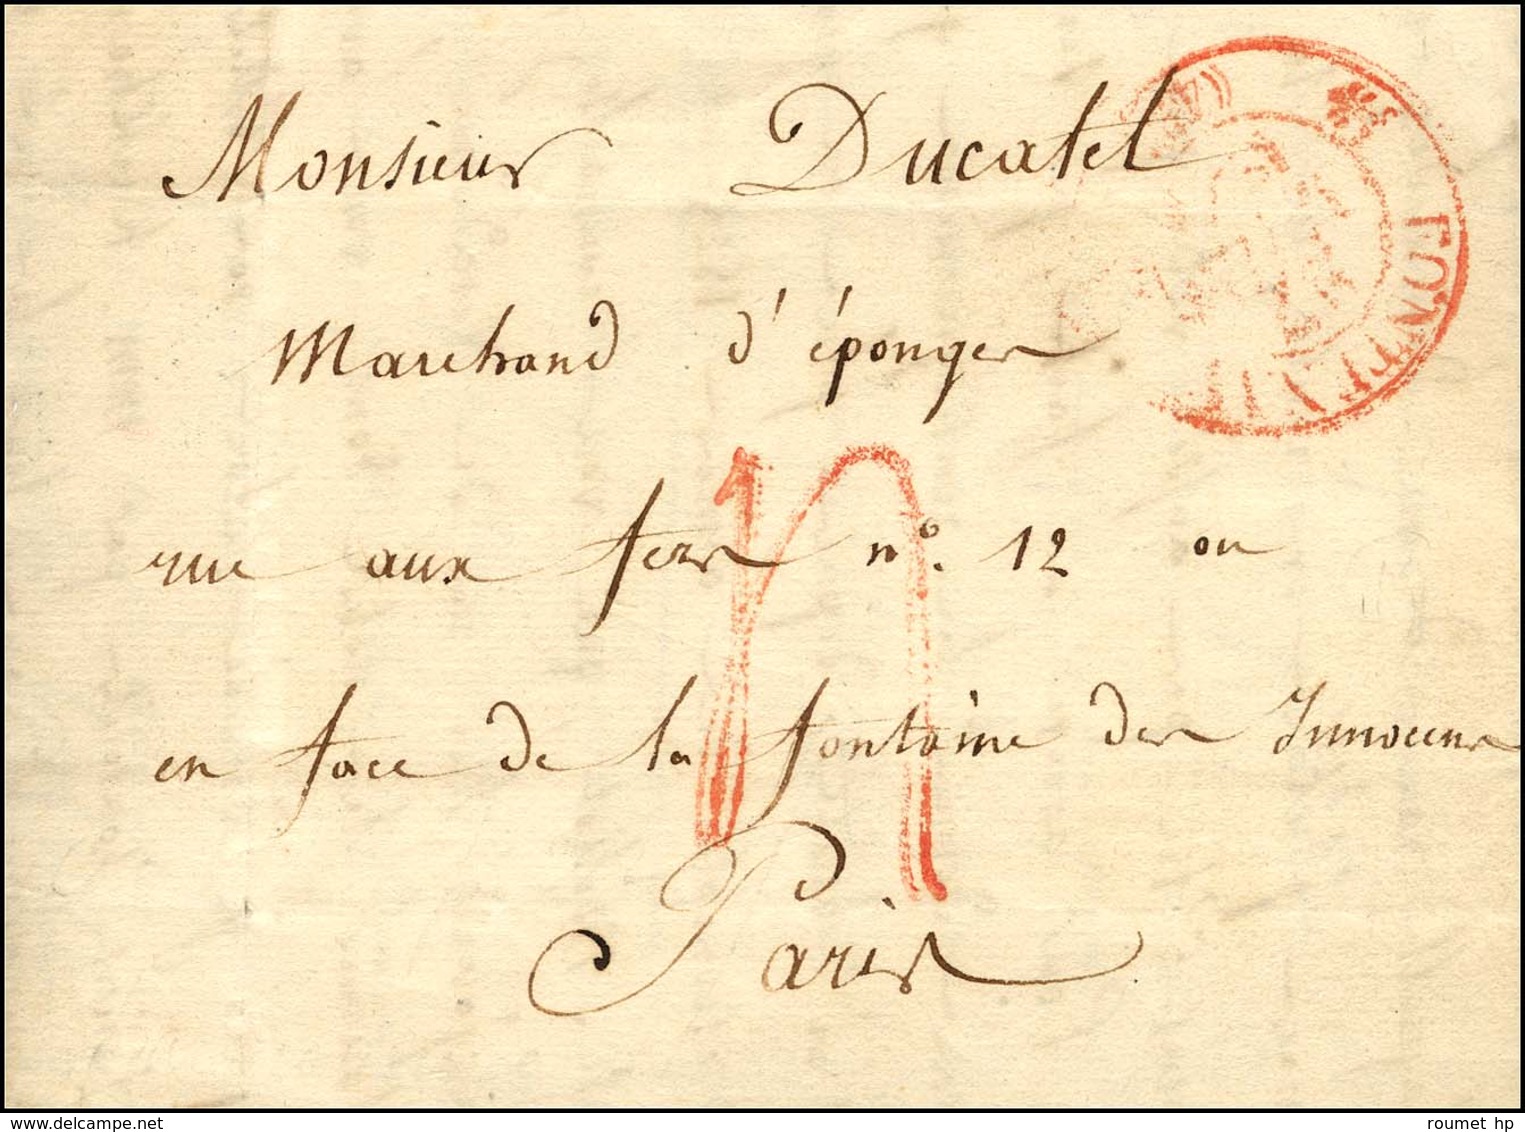 Monsieur Ducatel
Marchand d'éponges
rue aux fers n°. 12 ou
en face de la fontaine des Innocens
Paris
FONTEVR
delcampe.net
roumet hp